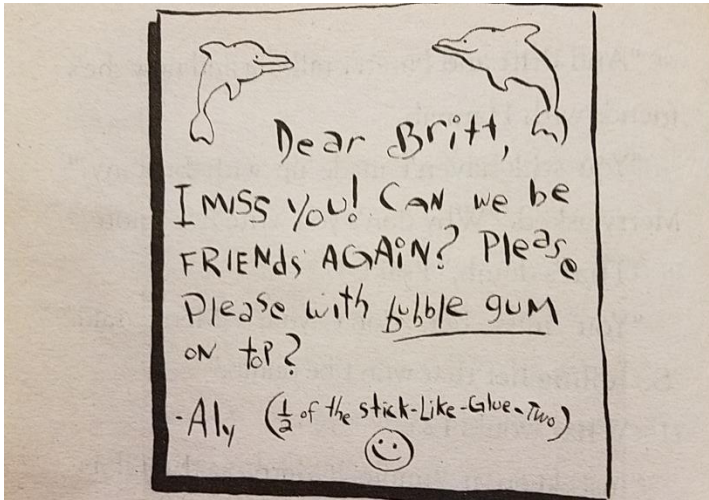 Dear Britt,
I MISS YOU! CAN we be
FRIENds AGAiN? Please
Please with bubble gum
ON toP?
-Aly (½ of the stick-Like-Glue-Two)